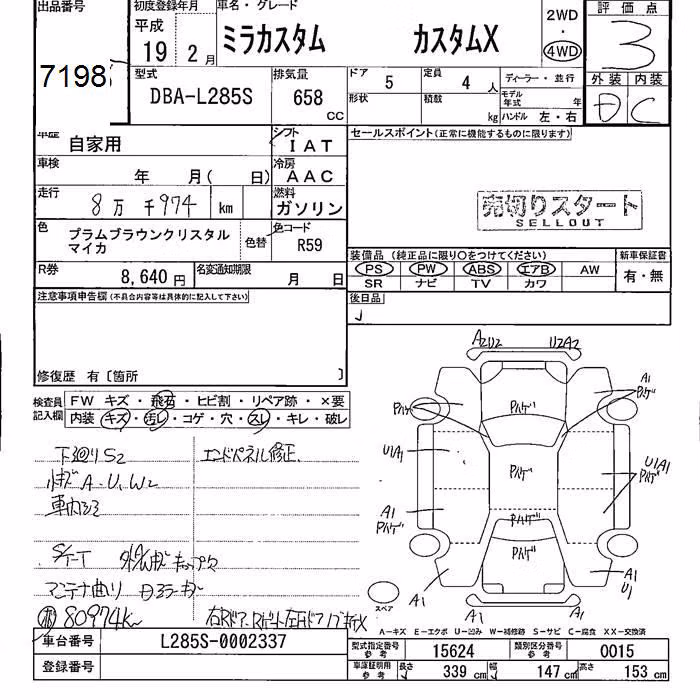 出品番号
7198
初度登録年月
平成
19 2 月
車名・グレード
ミラカスタム カスタムX
2WD
・
4WD
評価点
3
外装 内装
D C
型式
DBA-L285S
排気量
658
CC
ドア
5
定員
4 人
形状
積載
kg
ディーラー・並行
モデル
年式 年
ハンドル 左・右
車歴
自家用
シフト
IAT
車検
年 月( 日)
冷房
AAC
走行
8万 千974 km
燃料
ガソリン
色
プラムブラウンクリスタル
マイカ
色替
色コード
R59
R券
8,640 円
名変通知期限
月 日
セールスポイント(正常に機能するものに限ります)
売切りスタート
SELLOUT
装備品 (純正品に限り〇をつけてください)
PS PW ABS エアB AW
SR ナビ TV カワ
新車保証書
有・無
後日品
注意事項申告欄(不具合内容等は具体的に記入して下さい)
修復歴 有〔箇所 〕
検査員
記入欄
FW キズ・飛石・ヒビ割・リペア跡・×要
内装 キズ・汚レ・コゲ・穴・スレ・キレ・破レ
下廻りS2
エンドパネル修正
キズA・U,W2
S/T-T
アンテナ曲り
80974km
A2U2 U2A2
Pハゲ
Pハゲ
A1
Pハゲ
U1A1
Pハゲ
U1A1
Pハゲ
A1
Pハゲ
Pハゲ
Pハゲ
A1
A1
U1
A1 A1
スペア
A-キズ E-エクボ U-凹み W-補修跡 S-サビ C-腐食 XX-交換済
車台番号
L285S-0002337
登録番号
型式指定番号
参考
15624
類別区分番号
参考
0015
車庫証明用
参考
長さ
339 cm
幅
147 cm
高さ
153 cm